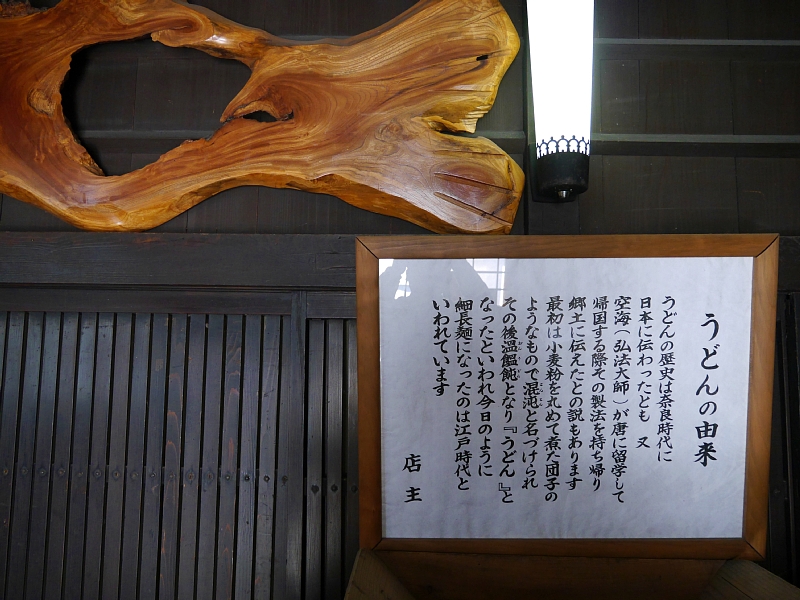 うどんの由来
うどんの歴史は奈良時代に
日本に伝わったとも 又
空海(弘法大師)が唐に留学して
帰国する際その製法を持ち帰り
郷土に伝えたとの説もあります
最初は小麦粉を丸めて煮た団子の
ようなもので混沌と名づけられ
その後温饂飩となり『うどん』と
なったといわれ今日のように
細長麺になったのは江戸時代と
いわれています
店主